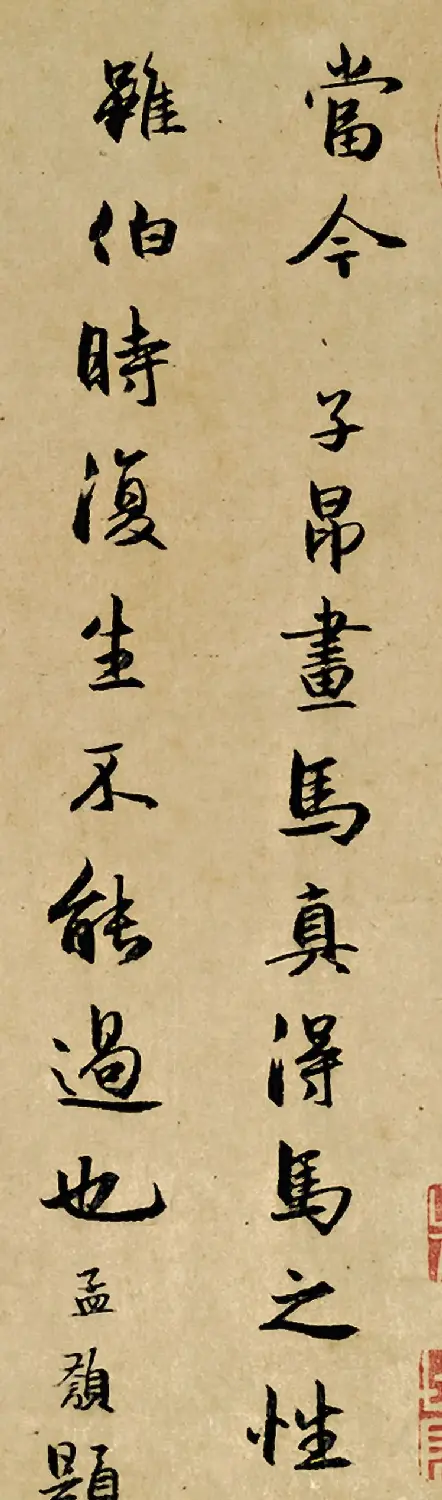 當今子昂畫馬真得馬之性
雖伯時復生不能過也孟頫題